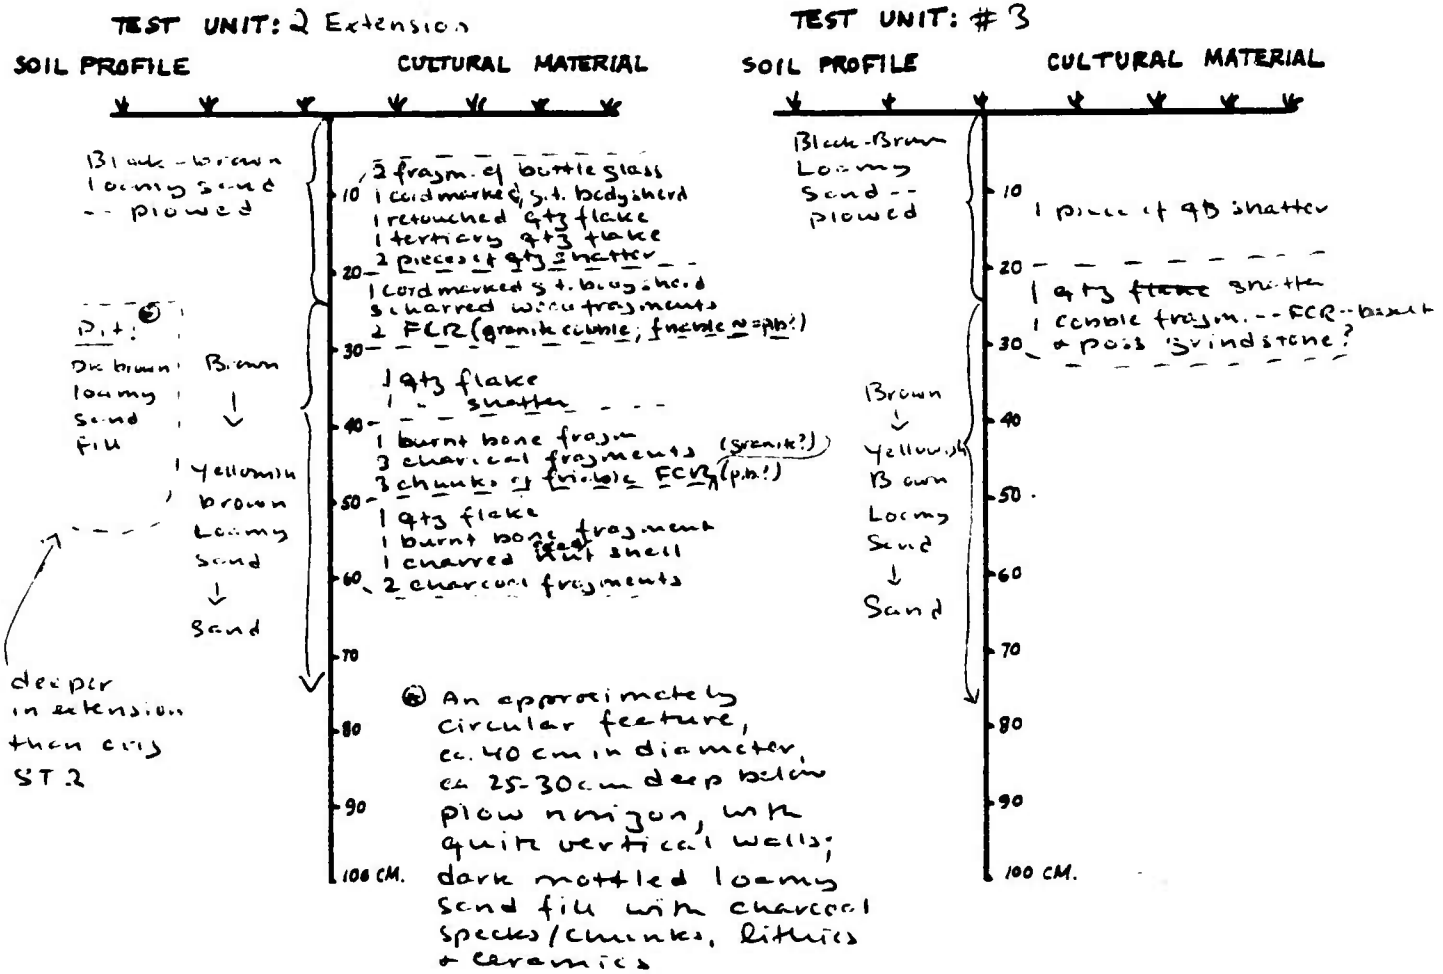 TEST UNIT: 2 Extension
SOIL PROFILE
CULTURAL MATERIAL
Black-brown
loamy sand
-- plowed
Pit:
Dk brown
loamy
sand
fill
Brown
↓
Yellowish
brown
Loamy
Sand
↓
Sand
deeper
in extension
than orig
ST.2
10
20
30
40
50
60
70
80
90
100 CM.
2 fragm. of bottle glass
1 cordmarked, g.t. bodysherd
1 retouched qtz flake
1 tertiary qtz flake
2 pieces of qtz shatter
1 cordmarked g.t. bodysherd
5 charred wood fragments
2 FCR (granite cobble; friable
1 qtz flake
1 " shatter
1 burnt bone fragm
3 charcoal fragments (granite?)
3 chunks of friable FCR, (p.b.?)
1 qtz flake
1 burnt bone fragment
1 charred nut shell
2 charcoal fragments
An approximately
circular feature,
ca. 40 cm in diameter,
ca 25-30 cm deep below
plow horizon, with
quite vertical walls;
dark mottled loamy
sand fill with charcoal
specks/chunks, lithics
+ ceramics
TEST UNIT: #3
SOIL PROFILE
CULTURAL MATERIAL
Black-Brown
Loamy
Sand --
plowed
Brown
↓
Yellowish
Brown
Loamy
Sand
↓
Sand
10
20
30
40
50
60
70
80
90
100 CM.
1 piece of shatter
1 qtz flake shatter
1 cobble fragm. -- FCR -- basalt
+ poss grindstone?